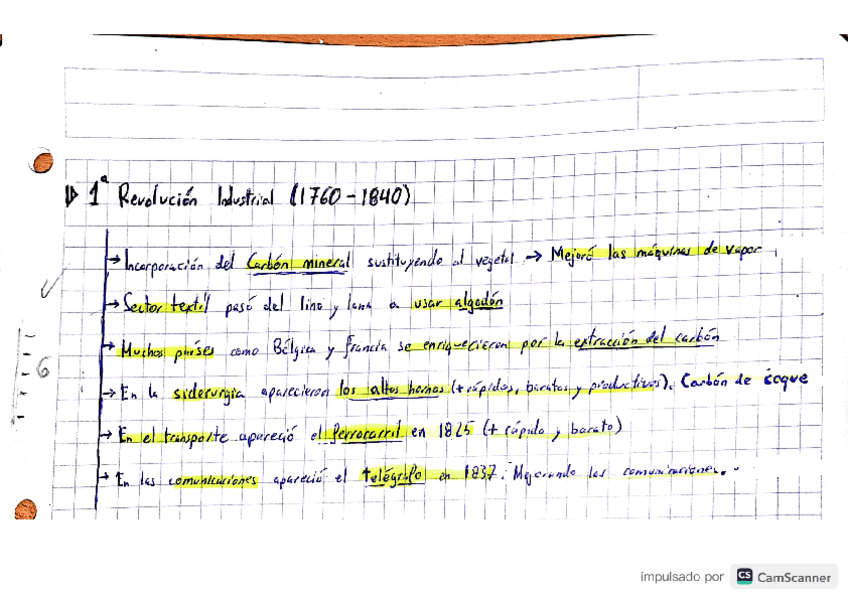 1ª Revolución Industrial (1760-1840)
→ Incorporación del Carbón mineral sustituyendo al vegetal → Mejoró las máquinas de vapor
→ Sector textil pasó del lino y lana a usar algodón
→ Muchos países como Bélgica y Francia se enriquecieron por la extracción del carbón
→ En la siderurgia aparecieron los altos hornos (+rápidos, baratos y productivos). Carbón de coque
→ En el transporte apareció el Ferrocarril en 1825 (+ rápido y barato)
→ En las comunicaciones apareció el telégrafo en 1837. Mejorando las comunicaciones.
6
impulsado por CS CamScanner